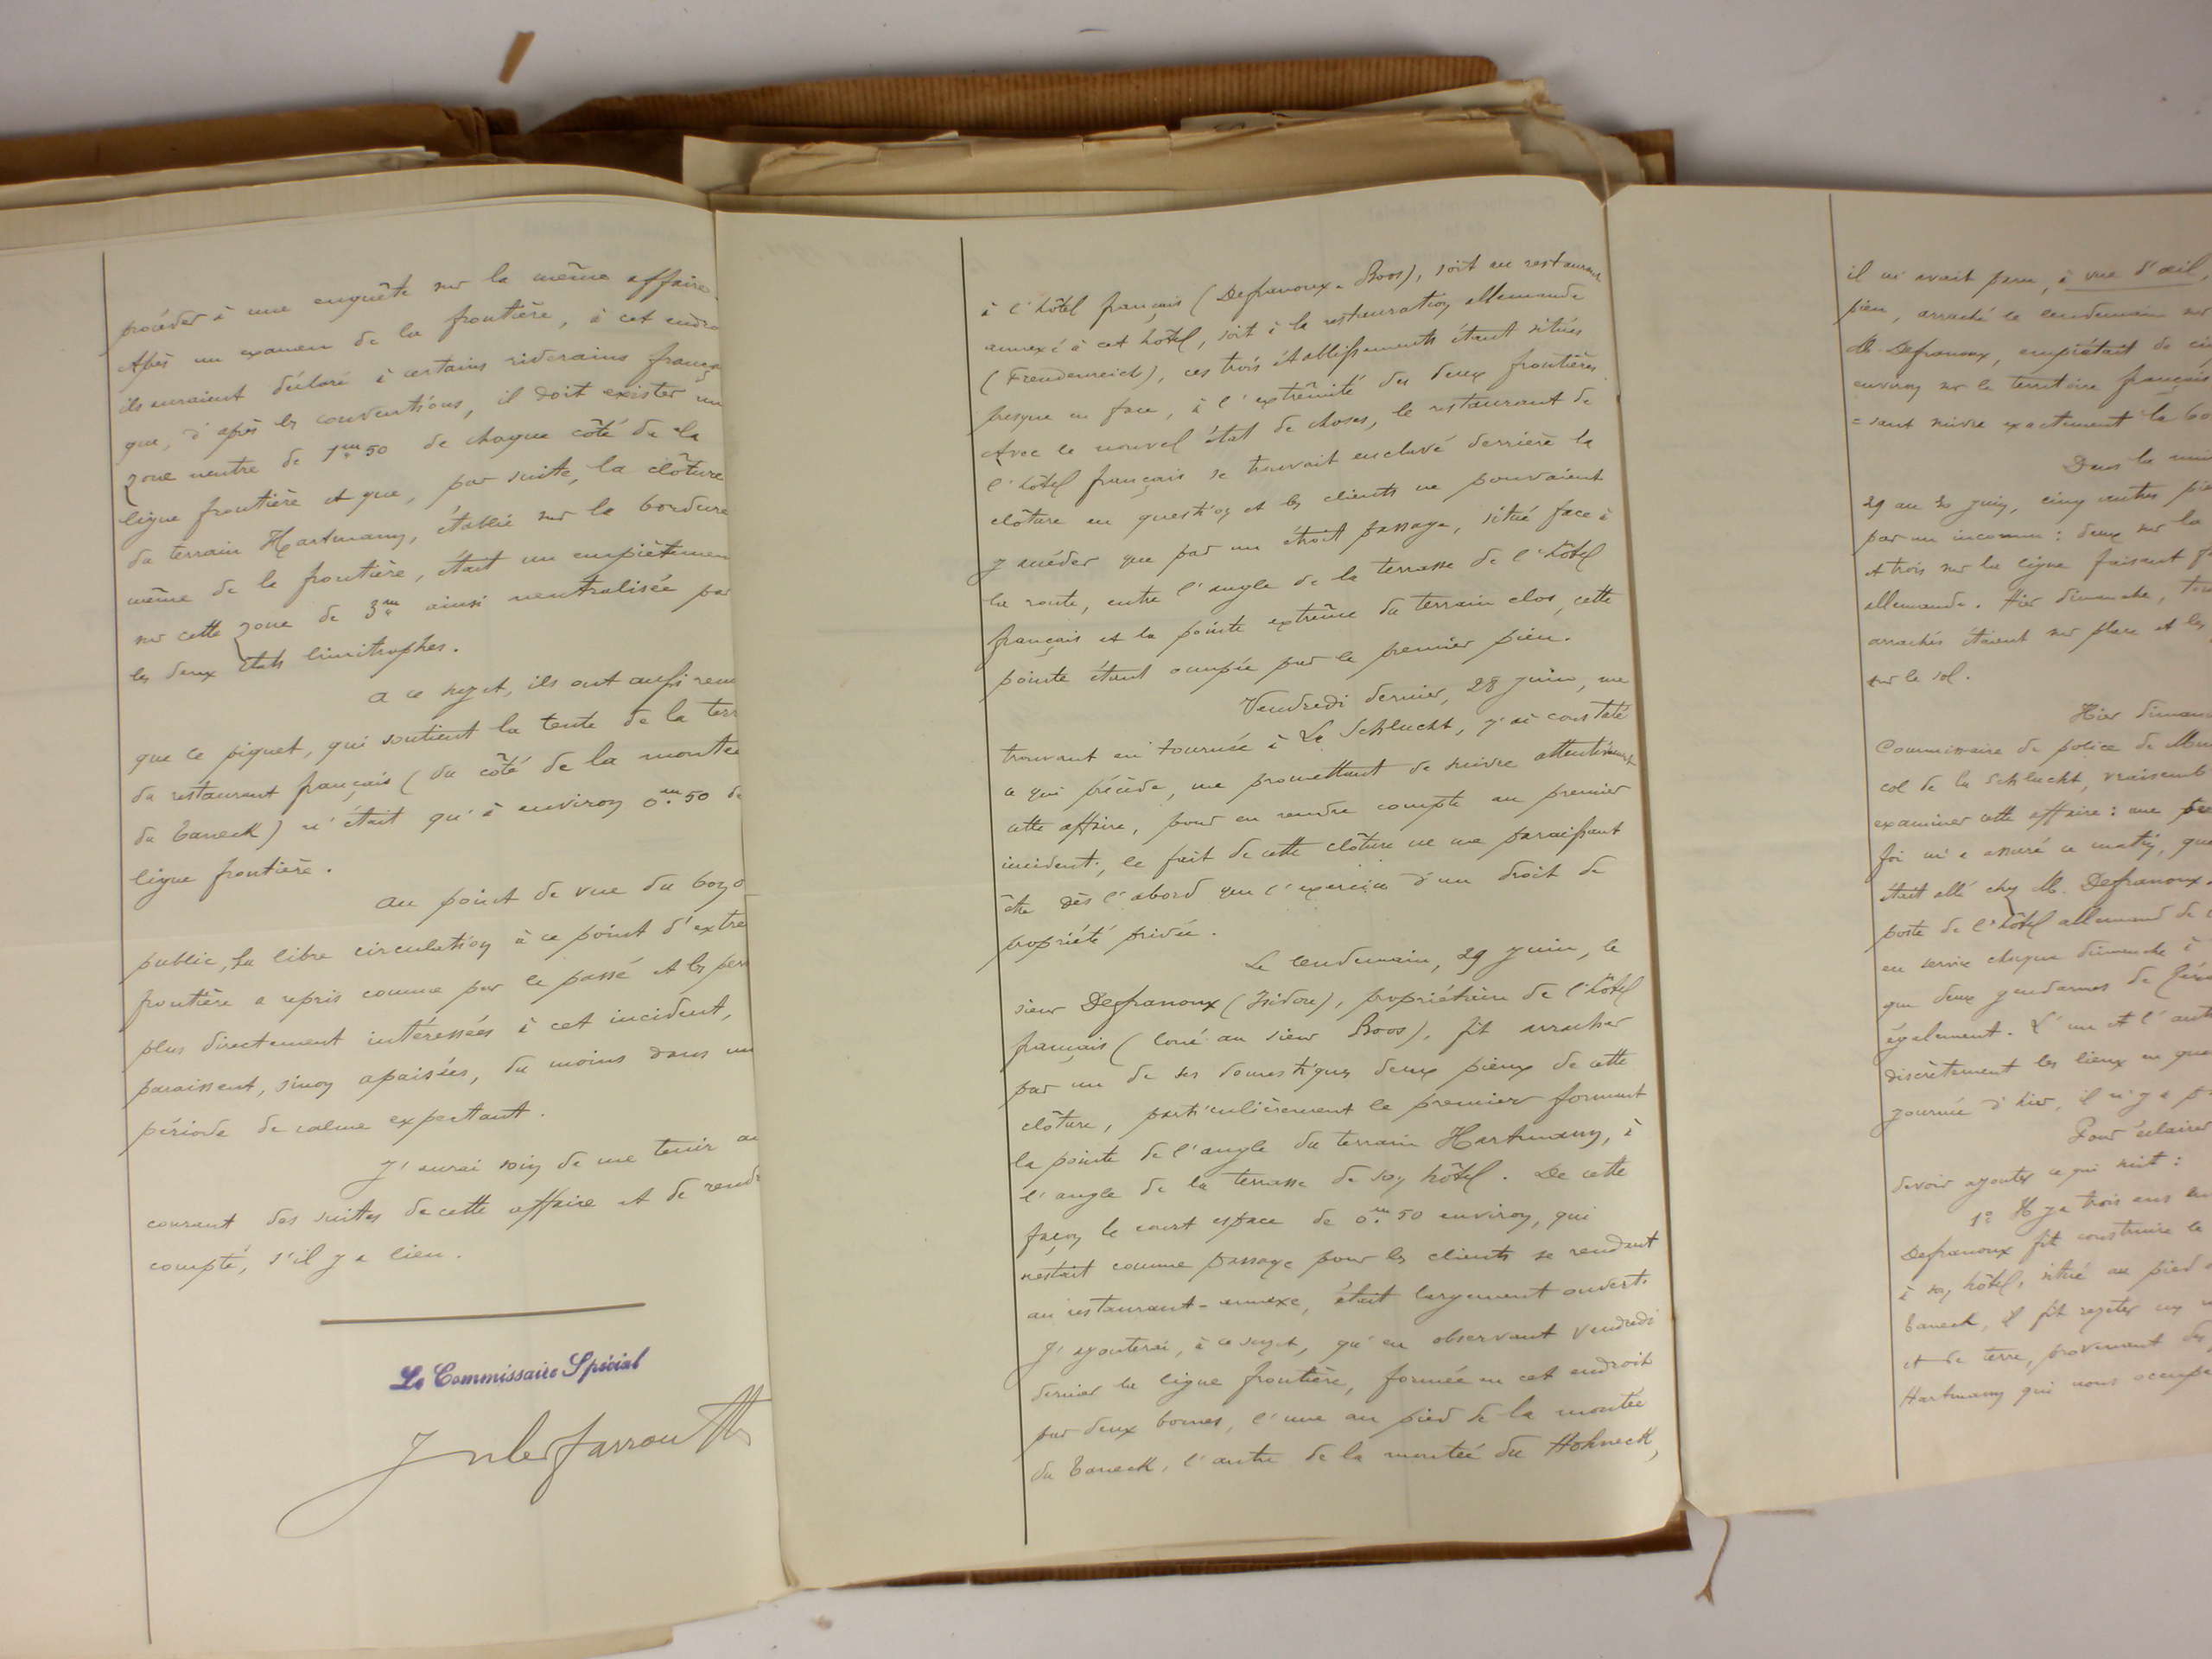 procéder à une enquête sur la même affaire.
Après un examen de la frontière, à cet endro
ils auraient déclaré à certains riverains frança
que, d'après les conventions, il doit exister un
zone neutre de 1m50 de chaque côté de la
ligne frontière et que, par suite, la clôture
du terrain Hartmann, établie sur la bordure
même de la frontière, était un empiètemen
sur cette zone de 3m ainsi neutralisée par
les deux États limitrophes.
A ce sujet, ils ont aussi rem
que ce piquet, qui soutient la tente de la terr
du restaurant français (du côté de la montée
du Taneck) n'était qu'à environ 0m.50 de
ligne frontière.
Au point de vue du
public, la libre circulation à ce point d'extrê
frontière a repris comme par le passé et les pers
plus directement intéressées à cet incident,
paraissent, sinon apaisées, du moins dans un
période de calme expectant.
J'aurai soin de me tenir au
courant des suites de cette affaire et de rendr
compte, s'il y a lieu.
Le Commissaire Spécial
à l'hôtel français (Defranoux-Boos), soit au restaurant
annexé à cet hôtel, soit à la restauration allemande
(Freudenreich), ces trois établissements étant situés
presque en face, à l'extrémité des deux frontières.
Avec le nouvel état de choses, le restaurant de
l'hôtel français se trouvait enclavé derrière la
clôture en question et les clients ne pouvaient
y accéder que par un étroit passage, situé face à
la route, entre l'angle de la terrasse de l'hôtel
français et la pointe extrême du terrain clos, cette
pointe étant occupée par le premier pieu.
Vendredi dernier, 28 juin, me
trouvant en tournée à La Schlucht, j'ai constaté
ce qui précède, me promettant de suivre attentivement
cette affaire, pour en rendre compte au premier
incident; le fait de cette clôture ne me paraissant
être dès l'abord que l'exercice d'un droit de
propriété privée.
Le lendemain, 29 juin, le
sieur Defranoux (Isidore), propriétaire de l'hôtel
français (loué au sieur Boos), fit arracher
par un de ses domestiques deux pieux de cette
clôture, particulièrement le premier formant
la pointe de l'angle du terrain Hartmann, à
l'angle de la terrasse de son hôtel. De cette
façon le court espace de 0m.50 environ, qui
restait comme passage pour les clients se rendant
au restaurant-annexe, était largement ouvert.
J'ajouterai, à ce sujet, qu'en observant vendredi
dernier la ligne frontière, formée en cet endroit
par deux bornes, l'une au pied de la montée
du Taneck, l'autre de la montée du Hohneck,
il m'avait paru, à vue d'œil,
pieu, arraché le lendemain sur
M. Defranoux, empiétait de
environ sur le territoire français
= sant suivre exactement la bo
Dans la nui
29 au 30 juin, cinq autres pie
par un inconnu: deux sur la
et trois sur la ligne faisant f
allemande. Hier dimanche, tou
arrachés étaient sur place et les
sur le sol.
Hier diman
Commissaire de police de Mun
col de la Schlucht, vraisemb
examiner cette affaire: une per
foi m'a assuré ce matin, que
était allé chez M. Defranoux.
poste de l'hôtel allemand de
en service chaque dimanche à
que deux gendarmes de Géra
également. L'un et l'aut
discrètement les lieux en que
journée d'hier, il n'y a p
Pour éclairer
devoir ajouter ce qui suit:
1° Il y a trois ans
Defranoux fit construire le
à son hôtel, situé au pied d
Taneck, il fit rejeter
et de terre, provenant des
Hartmann qui nous occupe